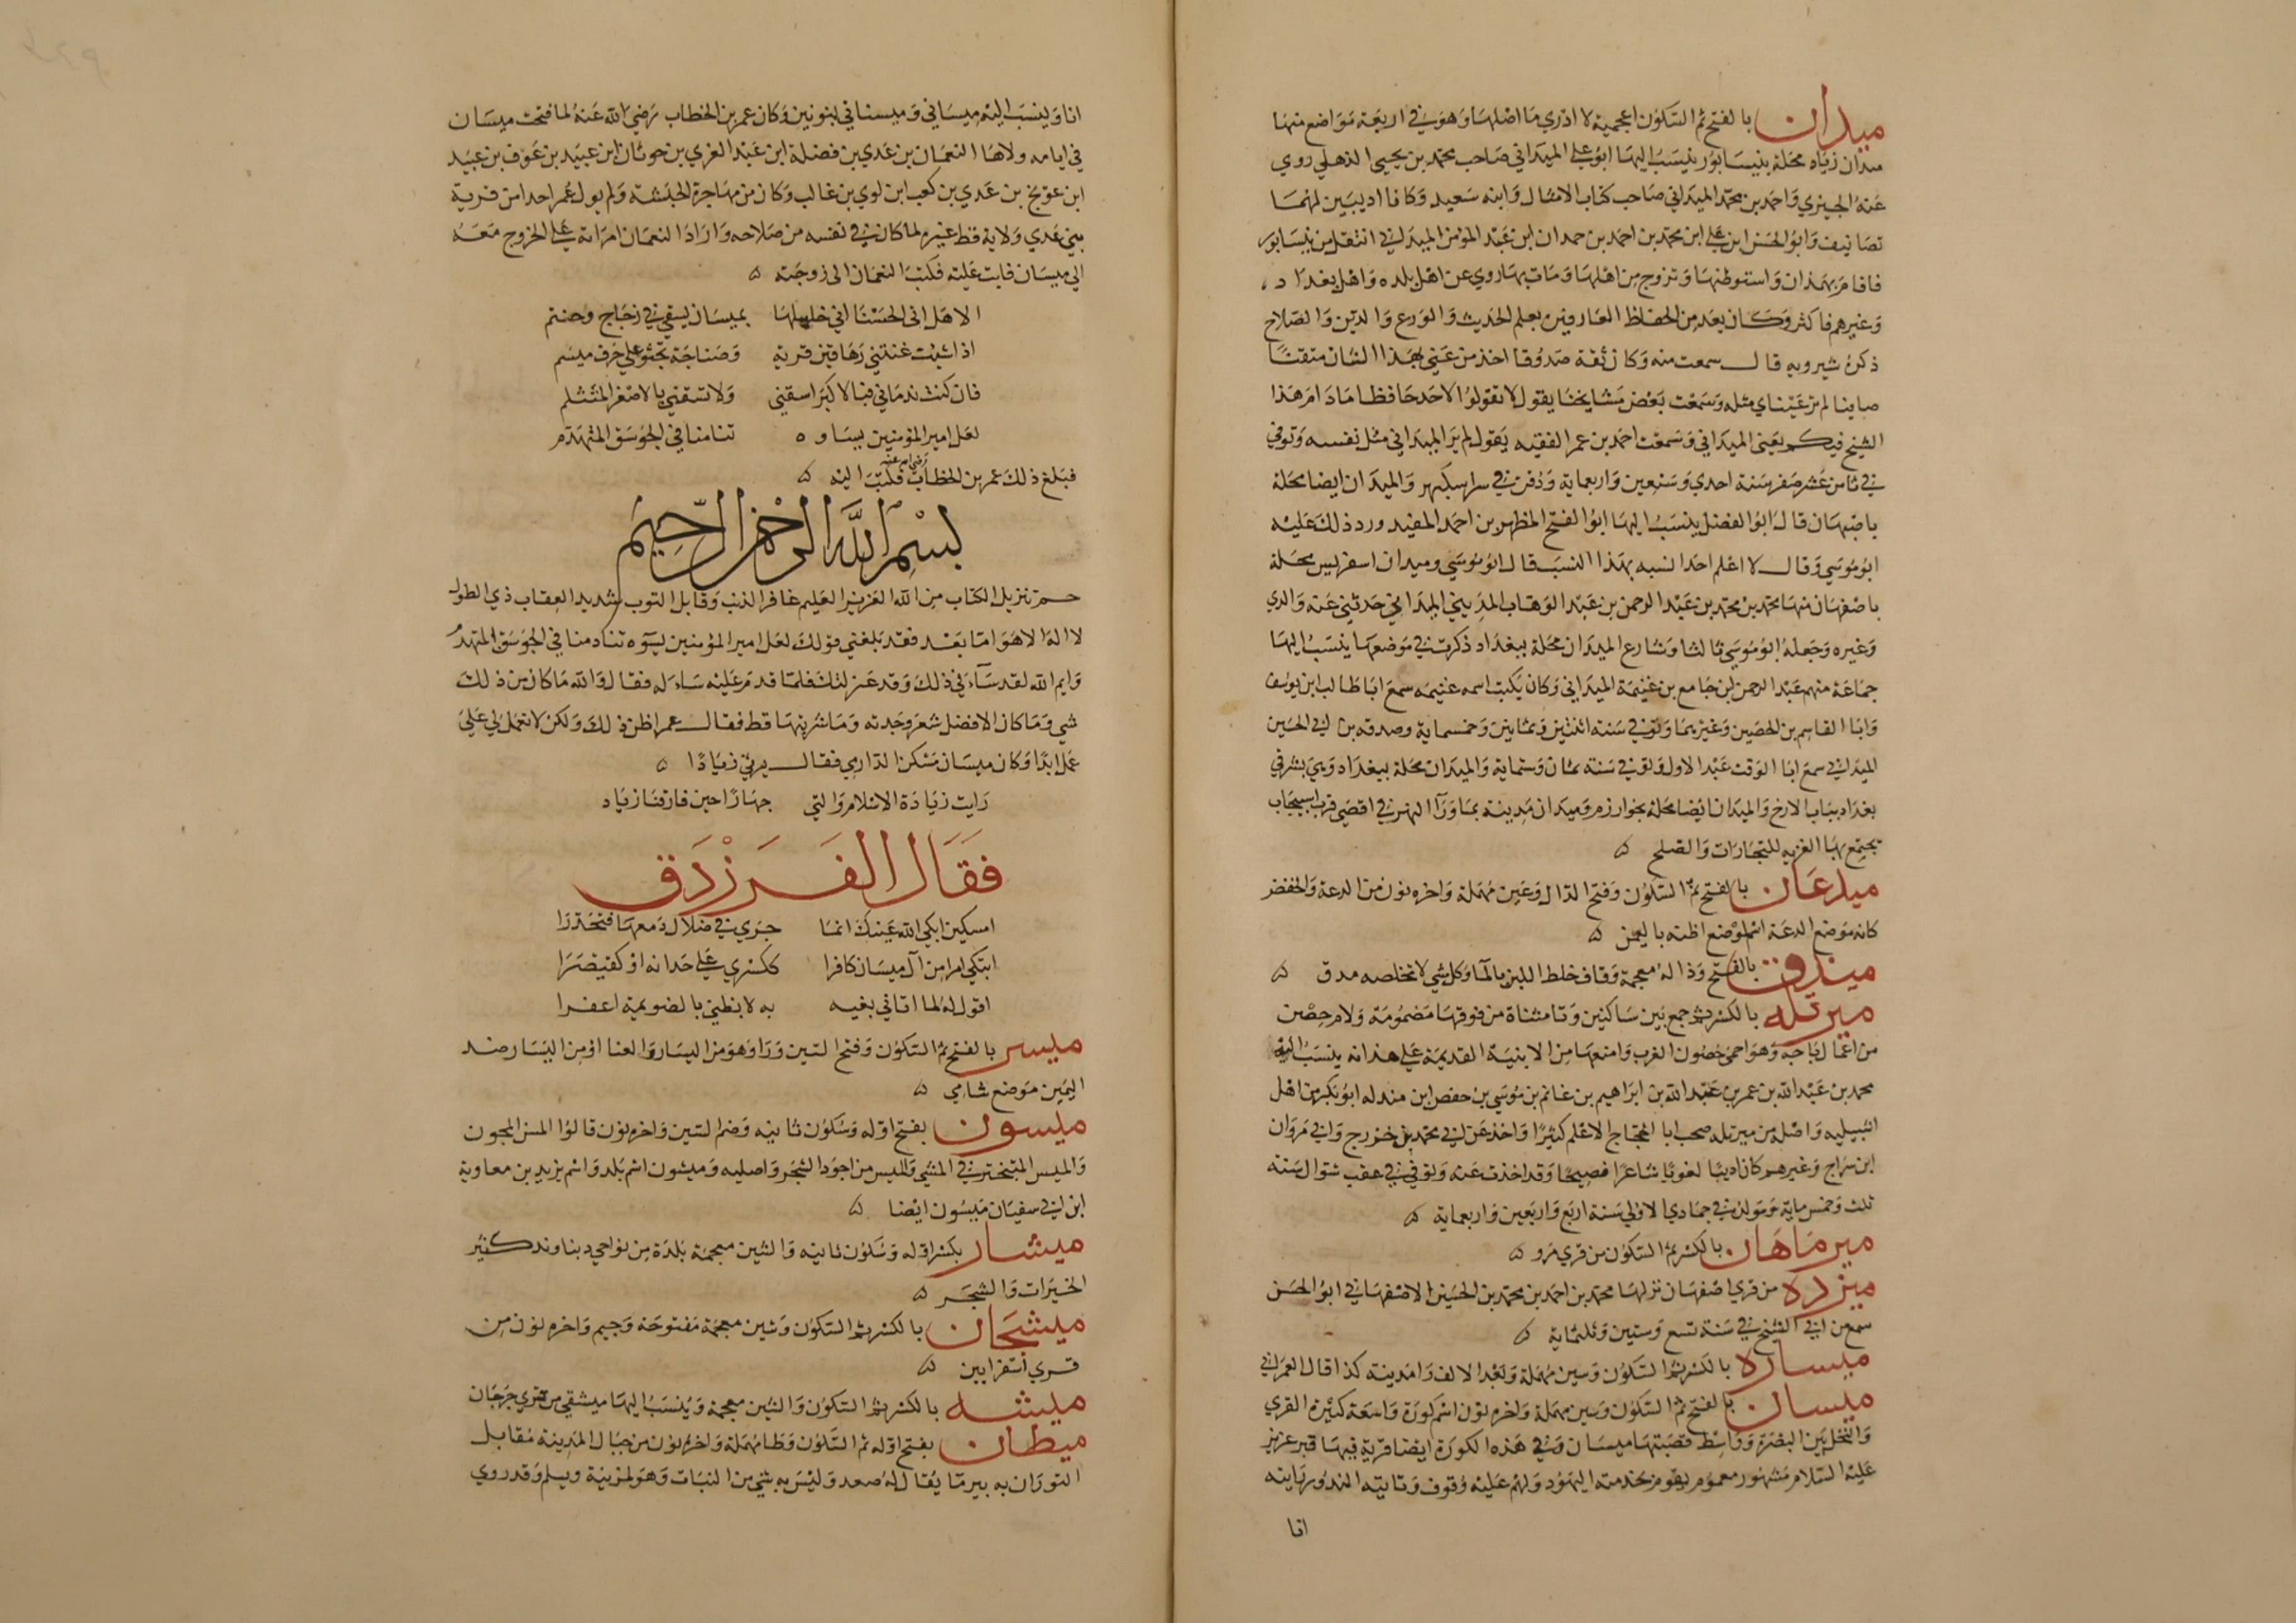 ميدان بالفتح ثم السكون اعجمية لا ادري ما اصلها وهو في اربعة مواضع منها
ميدان زياد محلة بنيسابور ينسب اليها ابو علي الميداني صاحب محمد بن يحيى الذهلي روي
عنه الحيري واحمد بن محمد الميداني صاحب كتاب الامثال وابنه سعيد وكانا اديبين لهما
تصانيف وابو الحسن ابن علي ابن محمد بن احمد بن حمدان ابن عبد المؤمن الميداني انتقل من نيسابور
فاقام بهمذان واستوطنها وتزوج من اهلها ومات بها روي عن اهل بلده واهل بغداد
وغيرهم فاكثر وكان يعد من الحفاظ العارفين بعلم الحديث والورع والدين والصلاح
ذكره شيرويه قال سمعت منه وكان ثقة صدوقا احذ من عني بهذا الشان متقنا
صاينا لم تر عيناي مثله وسمعت بعض مشايخنا يقول لا تقولوا لاحد حافظا مادام هذا
الشيخ فيكم يعني الميداني وسمعت احمد بن عمر الفقيه يقول لم ير الميداني مثل نفسه وتوفي
في ثامن عشر صفر سنة احدي وسبعين واربعماية ودفن في سراسكبهر والميدان ايضا محلة
باصبهان قال ابو الفضل ينسب اليها ابو الفتح المظهر بن احمد المفيد ورد ذلك عليه
ابو موسي وقال لا اعلم احدا نسبه بهذا النسب قال ابو موسي وميدان اسفريس محلة
باصفهان منها محمد بن محمد بن عبد الرحمن بن عبد الوهاب المديني الميداني حدثني عنه والدي
وغيره وجعله ابو موسي ثالثا وشارع الميدان محلة ببغداد ذكرت في موضعها ينسب اليها
جماعة منهم عبد الرحمن ابن جامع بن غنيمة الميداني وكان يكتب اسمه غنيمه سمع ابا طالب ابن يوسف
وابا القاسم بن الحصين وغيرهما وتوفي في سنة اثنتين وثمانين وخمسماية وصدقه بن ابي الحسين
الميداني سمع ابا الوقت عبد الاول وتوفي سنة ثمان وستماية والميدان محلة ببغداد وهي بشرقي
بغداد بباب الازج والميدان ايضا محلة بخوارزم وميدان مدينة بما ورا النهر في اقصي قرب اسبيجاب
يجتمع بها الغزيه للتجارات والصلح ۵
ميدعان بالفتح ثم السكون وفتح الدال وعين مهملة واخره نون من الدعة والخفض
كانه موضع الدعة اسم لموضع اظنه باليمن ۵
ميذق بالفتح وذاله معجمة وقاف خلط اللبن بالما وكل شي لا تخلصه مدق ۵
ميرتله بالكسر ثم جمع بين ساكنين وتا مثناة من فوقها مضمومة ولام حصن
من اعمال باجه وهو احمي حصون الغرب وامنعها من الابنية القديمة علي هذا نه ينسب اليه
محمد بن عبد الله بن عمر بن عبد الله بن ابراهيم بن غانم بن موسي بن حفص ابن منده ابو بكر من اهل
اشبيليه واصله من ميرتله صحب ابا الحجاج الاعلم كثيرا واخذ عن ابي محمد بن خزرج وابي مروان
ابن سراج وغيرهم كان اديبا لغويا شاعرا فصيحا وقد اخذت عنه وتوفي في عقب شوال سنة
ثلث وخمس ماية ومولده في جمادي الاولي سنة اربع واربعين واربعماية ۵
ميرماهان بالكسر ثم السكون من قري مرو ۵
ميزده من قري اصفهان نزلها محمد بن احمد بن محمد بن الحسين الاصفهاني ابو الحسن
سمع من ابي الشيخ في سنة تسع وستين وثلثماية ۵
ميساره بالكسر ثم السكون وسين مهملة وبعد الالف را مدينة كذا قال العمراني
ميسان بالفتح ثم السكون وسين مهملة واخره نون اسم كورة واسعة كثيرة القري
والنخل بين البصرة وواسط قصبتها ميسان وفي هذه الكورة ايضا قرية فيها قبر عزيز
عليه السلام مشهور معمور يقوم بخدمته اليهود ولهم عليه وقوف وتاتيه النذور رايته
انا
انا وينسب اليه ميساني وميسناني بنونين وكان عمر بن الخطاب رضي الله عنه لما فتحت ميسان
في ايامه ولاها النعمان بن عدي بن فضلة ابن عبد العزي بن حرثان ابن عبيد بن عوف بن عبيد
ابن عويج بن عدي بن كعب ابن لوي بن غالب وكان من مهاجرة الحبشة ولم يول عمر احدا من قرية
بني عدي ولاية قط غيره لما كان في نفسه من صلاحه واراد النعمان امراته علي الخروج معه
الي ميسان فابت عليه فكتب النعمان الى زوجته ۵
الا هل اتى الحسنا اني خليلها بميسان يسقي في زجاج وحنتم
اذا شيت غنتني دهاقين قرية وصناجة تجثو علي حرف ميسم
فان كنت ندماني فبالاكبر اسقني ولا تسقني بالاصغر المتثلم
لعل امير المؤمنين يساوه تنادمنا في الجوسق المتهدم
فبلغ ذلك عمر بن الخطاب رضي الله عنه فكتب اليه ۵
بسم الله الرحمن الرحيم
حم تنزيل الكتاب من الله العزيز العليم غافر الذنب وقابل التوب شديد العقاب ذي الطول
لا اله الا هو اما بعد فقد بلغني قولك لعل امير المؤمنين يسوه تنادمنا في الجوسق المتهدم
وايم الله لقد ساءني ذلك وقد عزلتك فلما قدم عليه ساءله فقال والله ما كان من ذلك
شي وما كان الا فضل شعر وجدته وما شربتها قط فقال عمر اظن ذلك ولكن لا تعمل لي علي
عمل ابدا وكان ميسان مسكن الدارمي فقال يرثي زيادا ۵
رايت زيادة الاسلام والتي جهارا حين فارقنا زياد
فقال الفرزدق
امسكين ابكي الله عينك انما جري في ضلال دمعها فتحدرا
ابتكي امرا من آل ميسان كافرا ككسري علي عدانه او كقيصرا
اقول له لما اتاني بغيه به لا بظبي بالضويمة اعفرا
ميسر بالفتح ثم السكون وفتح السين ورا وهو من اليسار والعنا او من اليسار ضد
اليمين موضع شامي ۵
ميسون بفتح اوله وسكون ثانيه وضم السين واخره نون قالوا المسن المجون
والميس المتبختر في المشي والميس من اجود الشجر واصلبه وميسون اسم بلد واسم يزيد بن معاوية
ابن ابي سفيان ميسون ايضا ۵
ميشار بكسر اوله وسكون ثانيه والشين معجمة بلدة من نواحي دنباوند كثير
الخيرات والشجر ۵
ميشجان بالكسر ثم السكون وشين معجمة مفتوحة وجيم واخره نون من
قري اسفرايين ۵
ميشه بالكسر ثم السكون والشين معجمة وينسب اليها ميشقي من قري جرجان
ميطان بفتح اوله ثم السكون وطا مهملة واخره نون من جبال المدينة مقابل
الشوران به بير ما يقال له صعد وليس به شي من النبات وهو لمزينة وسليم وقد روي